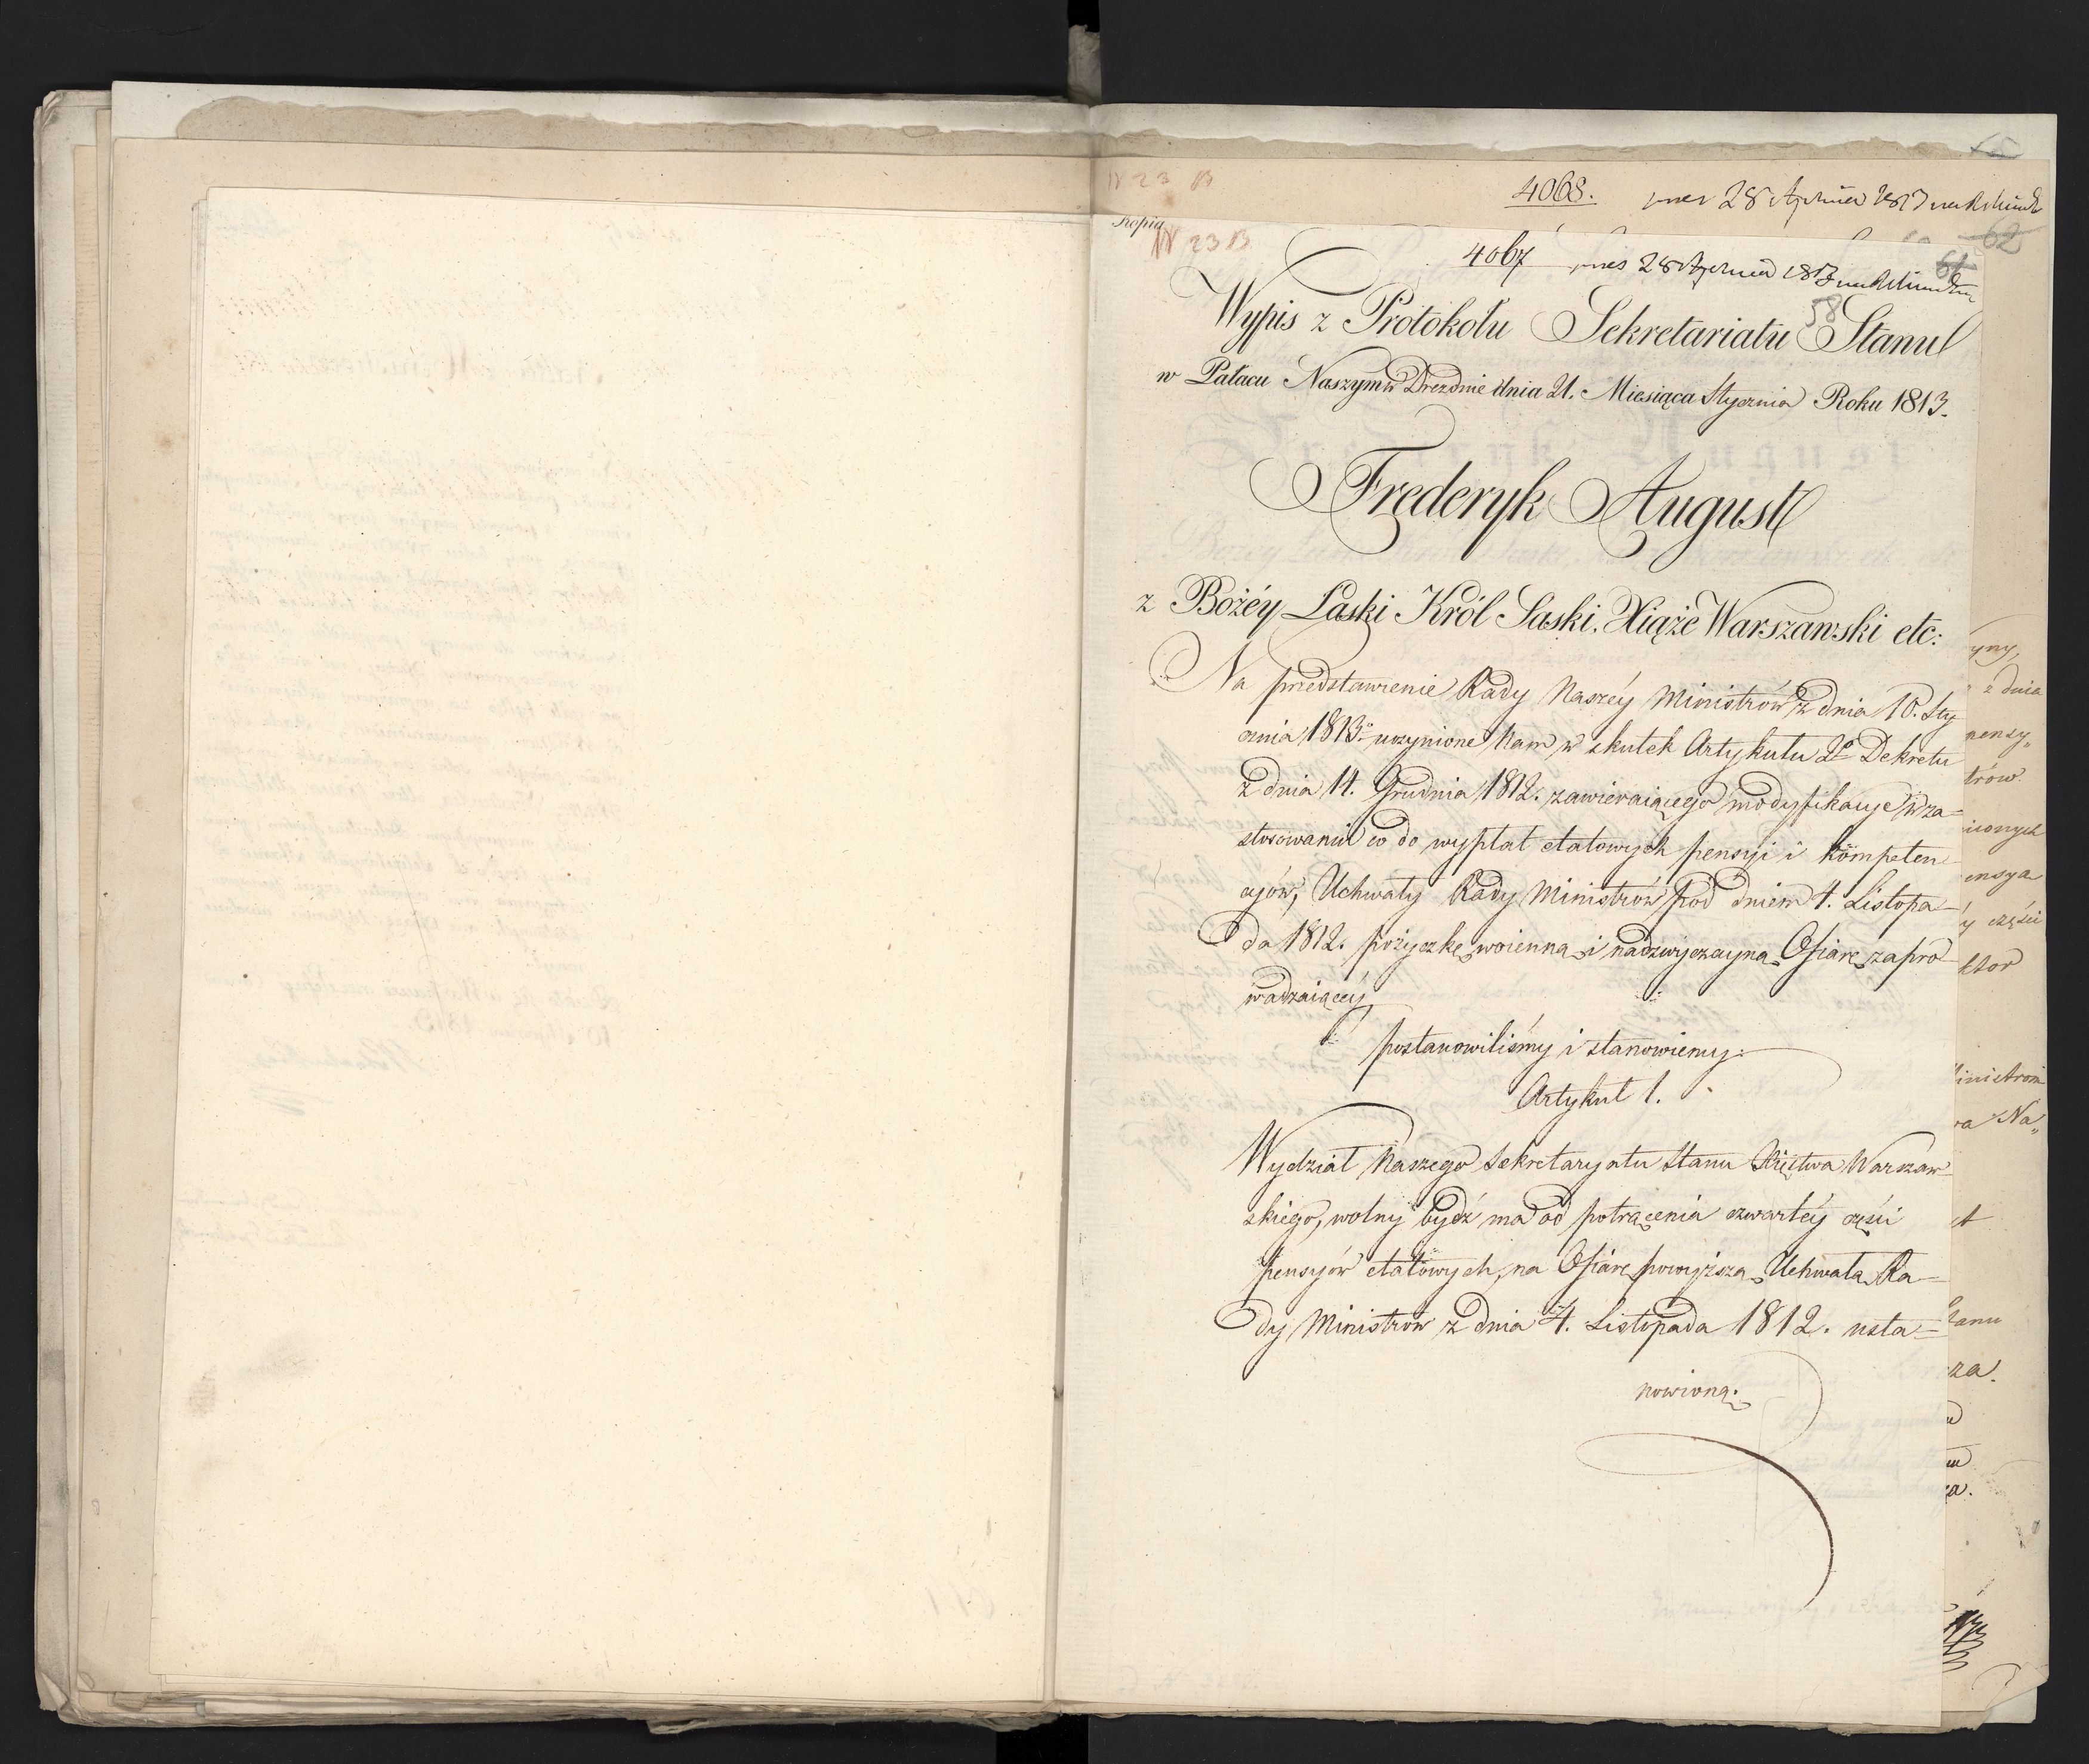 N 23 B
4068.
28
62
Kopia
N 23 B
4067
61
58
Wypis z Protokołu Sekretariatu Stanu
w Pałacu Naszym w Dreznie dnia 21. Miesiąca Stycznia Roku 1813.
Frederyk August
z Bożéy Łaski Król Saski, Xiąże Warszawski etc:
Na przedstawienie Rady Naszéy Ministrów z dnia 10. Sty
cznia 1813. uczynione Nam w skutek Artykułu 2º Dekretu
z dnia 14. Grudnia 1812. zawieraiącego modyfikacye w za=
stosowaniu co do wypłat etatowych pensyi i kompeten
cyów, Uchwały Rady Ministrów pod dniem 4. Listopa
da 1812. pożyczkę woienną i nadzwyczayną Ofiarę zapro
wadzaiącéy
postanowiliśmy i stanowiemy:
Artykuł 1.
Wydział Naszego Sekretaryatu Stanu Xięstwa Warszaw
skiego, wolny bydź ma od potrącenia czwartéy częśći
pensyów etatowych, na Ofiarę powyższą Uchwałą Ra=
dy Ministrów z dnia 4. Listopada 1812. usta=
nowioną.
yny,
z dnia
pensy„
trów
ionych
ensya
y części
ktor
inistrom
ra Na„
et
Stanu
za.